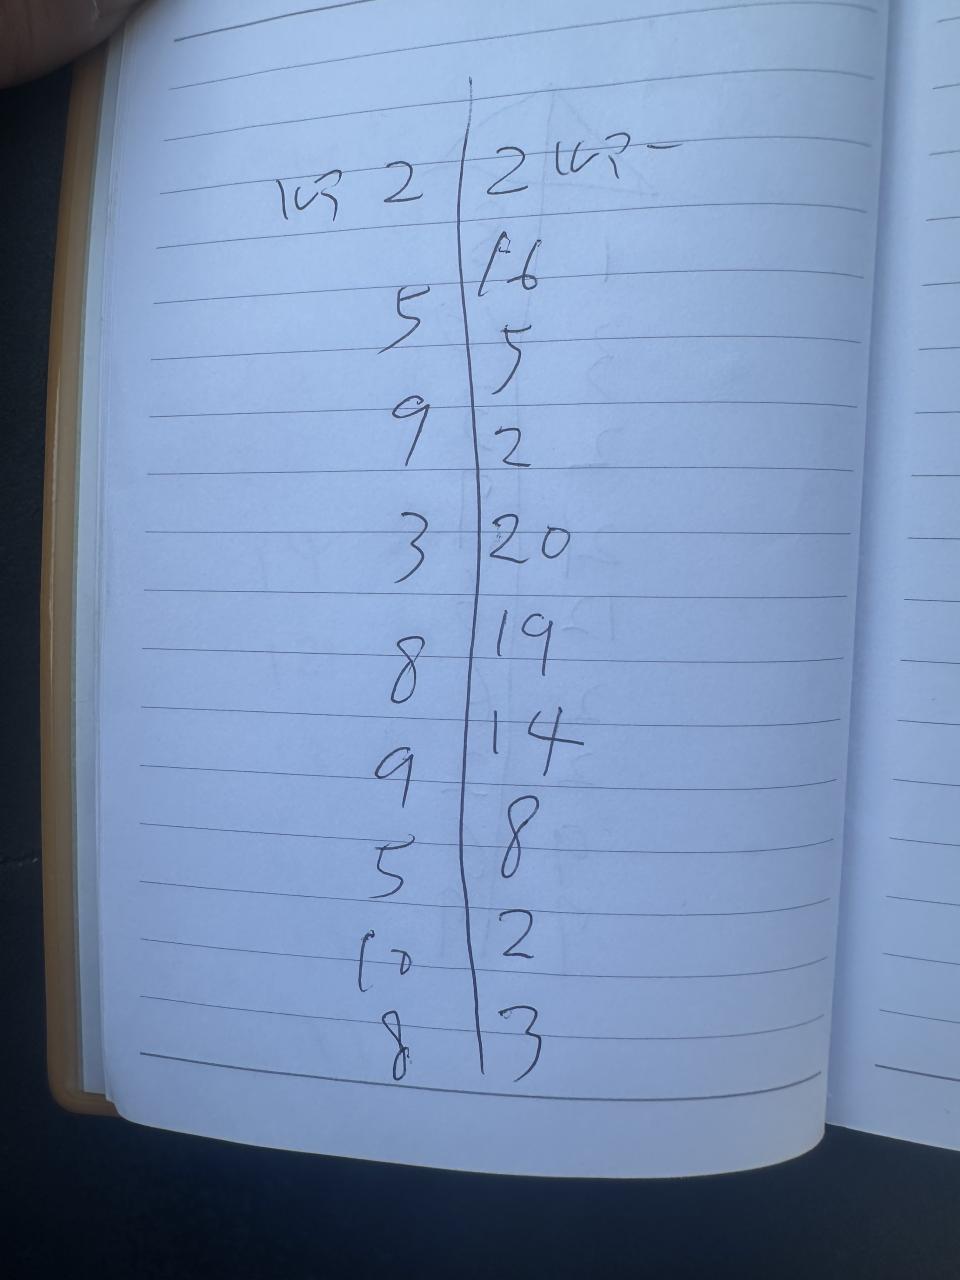 2 2
16
5 5
9 2
3 20
8 19
9 14
5 8
10 2
8 3